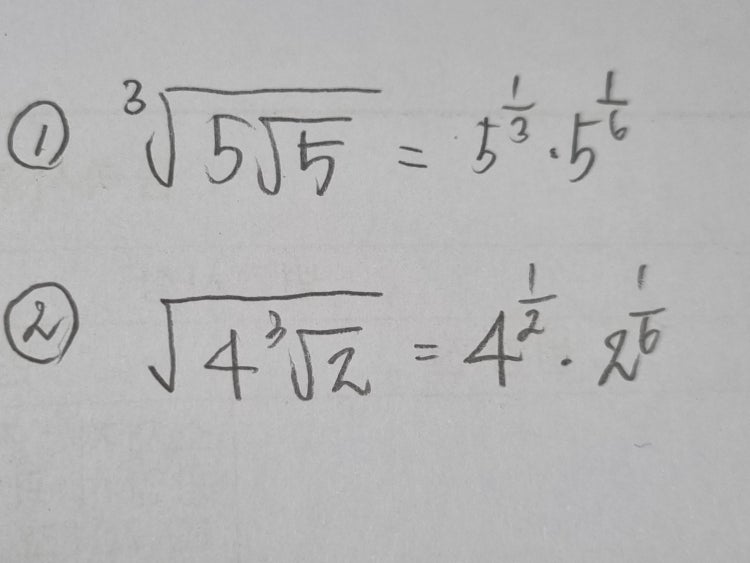 ① ∛(5√5) = 5^(1/3) · 5^(1/6)
② √(4∛2) = 4^(1/2) · 2^(1/6)